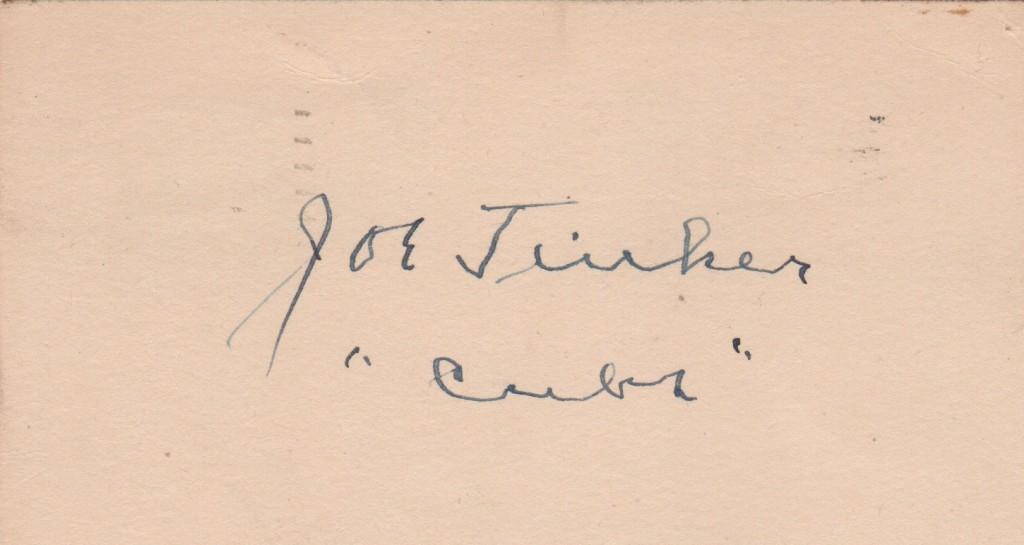 Joe Tinker
"Cubs"